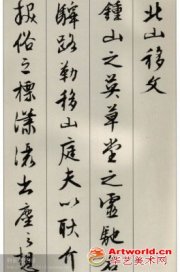 北山移文
鍾山之英草堂之靈馳煙
驛路勒移山庭夫以耿介
拔俗之標瀟洒出塵之想
Artworld.cn
华艺美术网